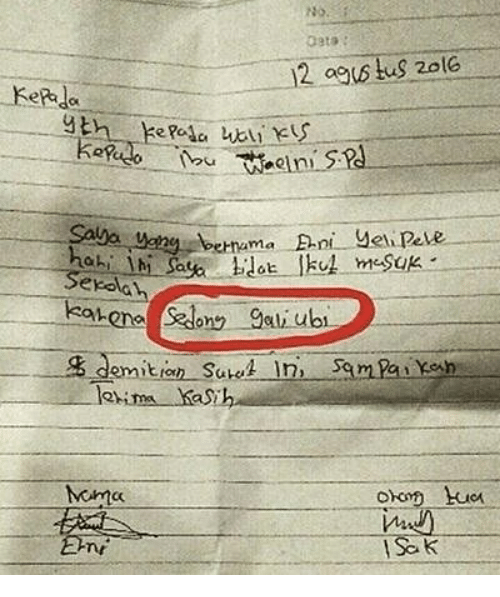 No. :
Date :
12 agustus 2016
Kepada
Yth kepada wali kls
Kepada ibu Welni S.Pd
Saya yang bernama Erni Yeli Pele
hari ini saya tidak ikut masuk
Sekolah
karena Sedang gali ubi
demikian Surat ini, sampaikan
Terima Kasih
Nama
orang tua
Erni
ISak